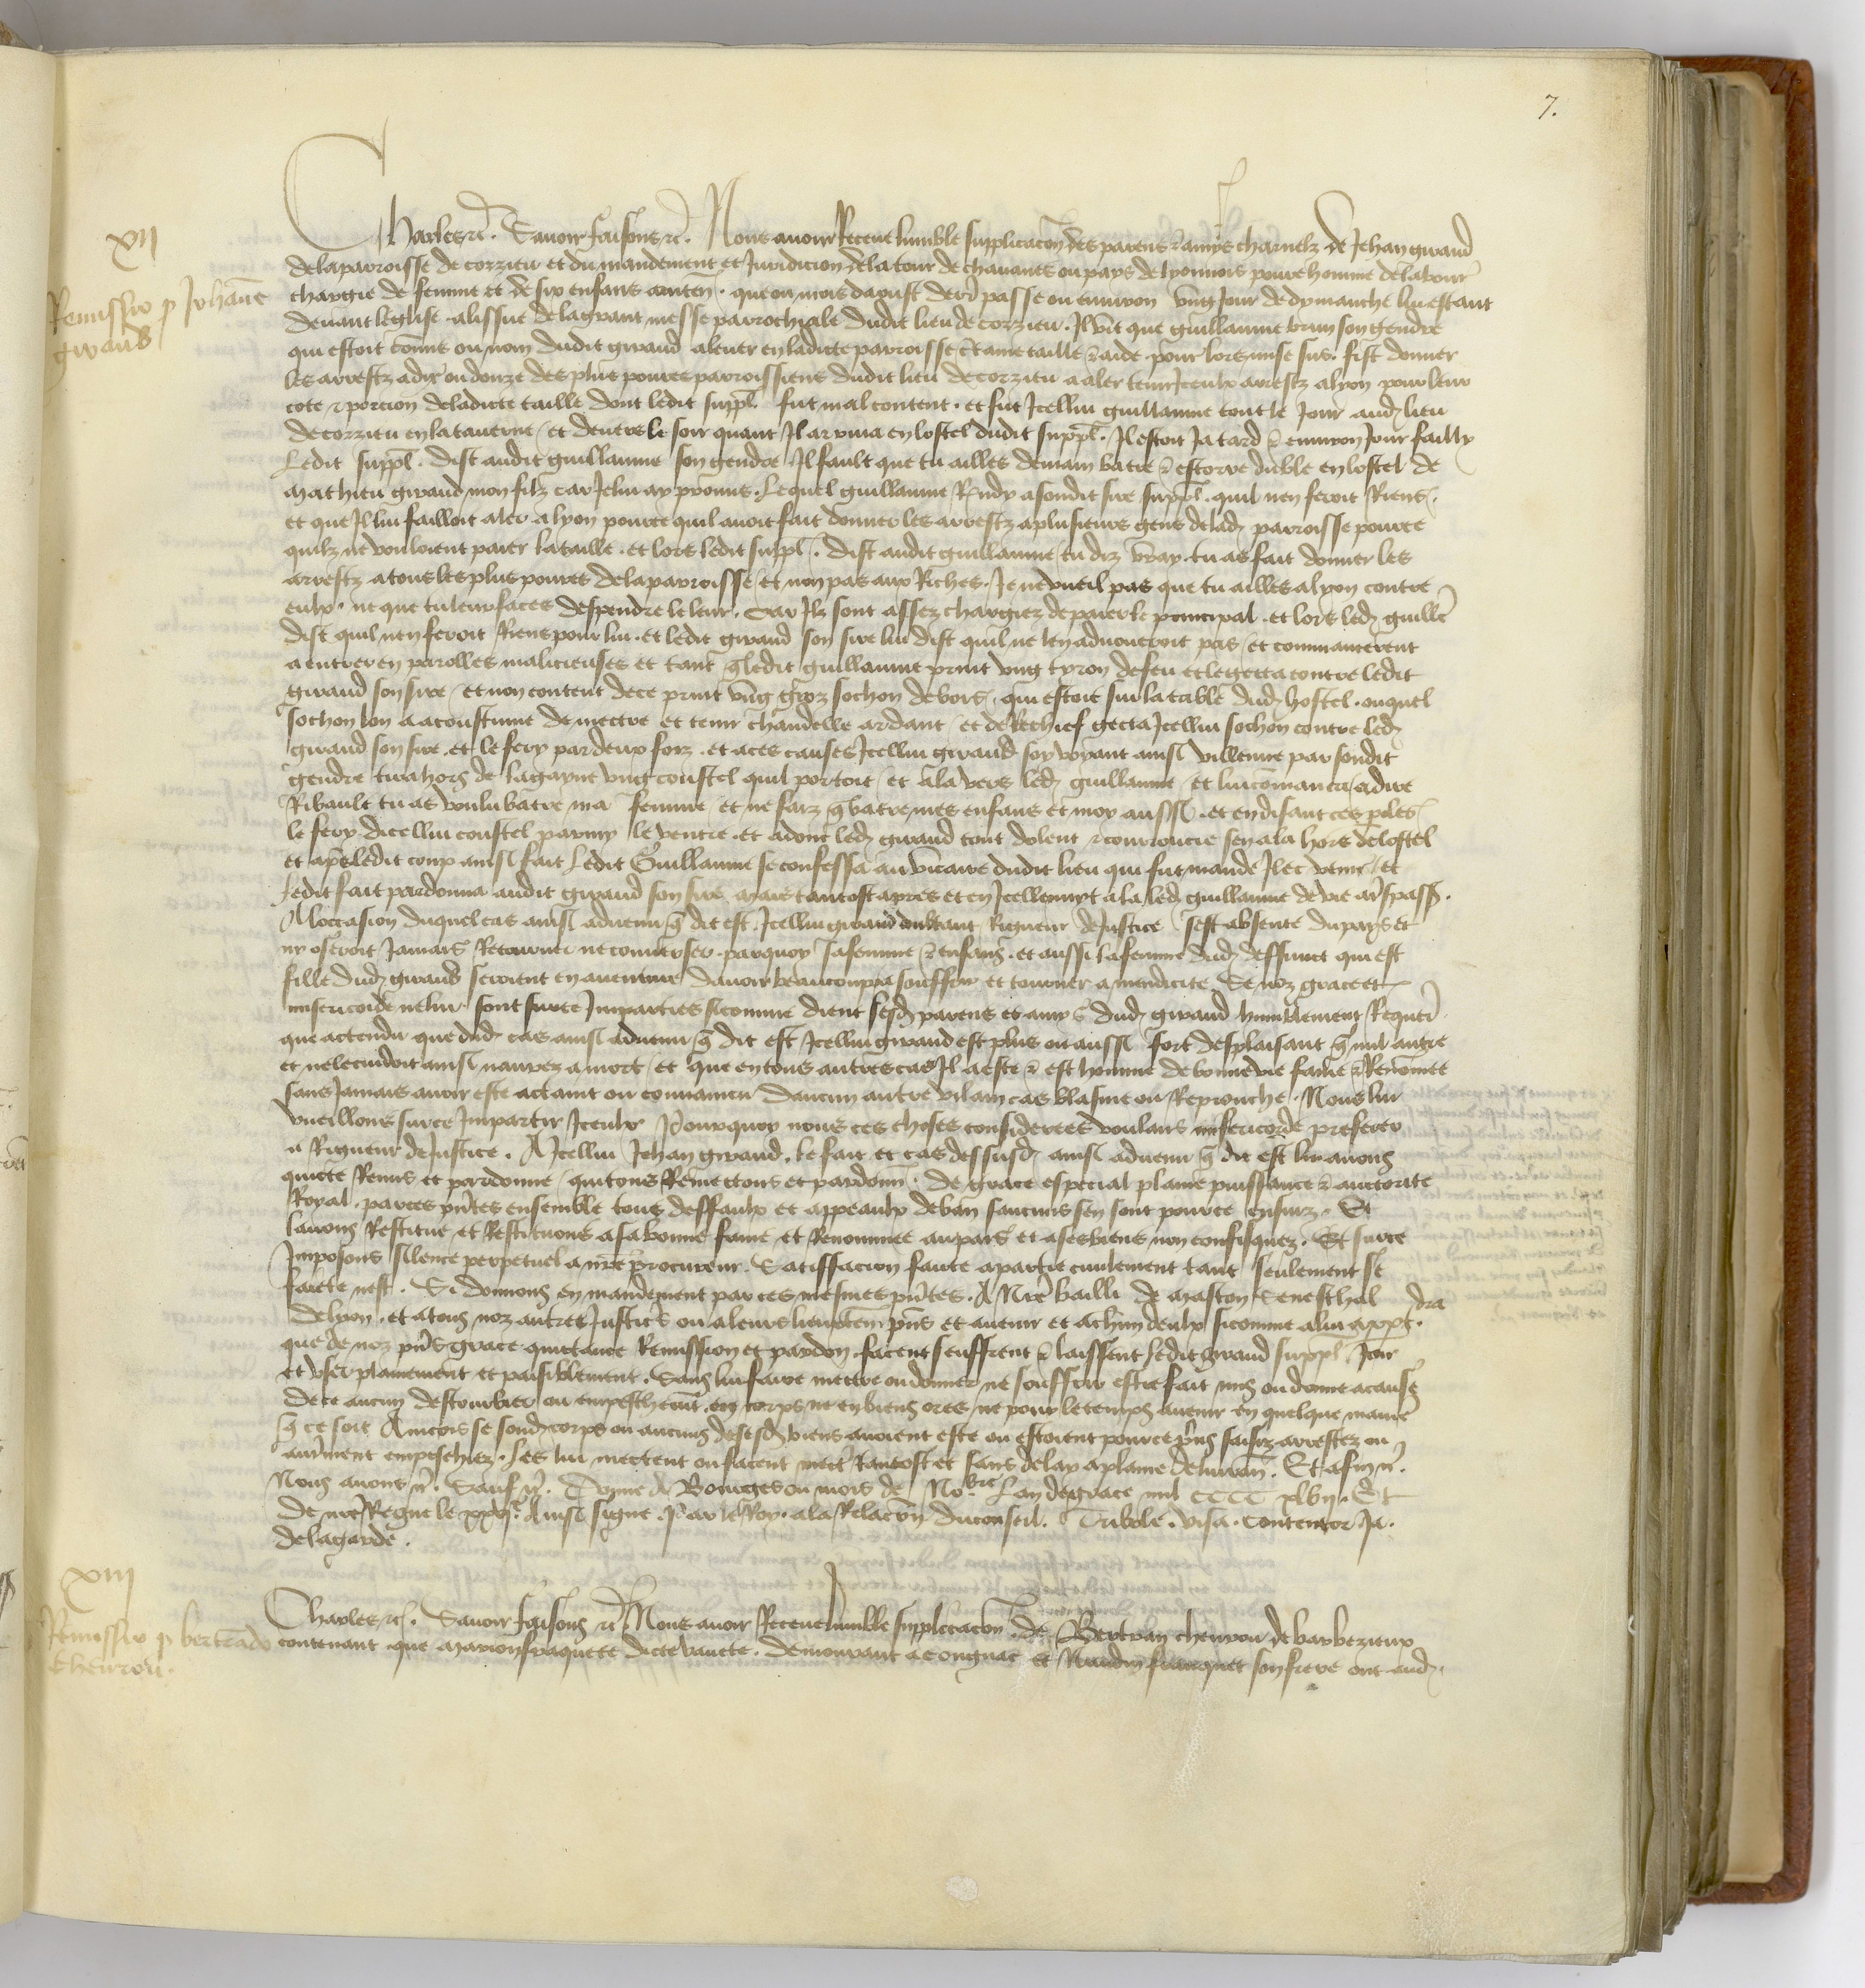 7.
xij
Remissio p Johanne
giraud
Charles etc. Savoir faisons etc. Nous avoir Receue humble supplicacon des parens et amys charnelz de Jehan giraud
de la parroisse de corzieu et du mandement et Juridicion de la tour de chavanes ou pays de lyonnois povre homme de labour
chargie de femme et de six enfans conten. que ou mois daoust derr passe ou environ ung Jour de dymanche lui estant
devant leglise a lissue de la grant messe parrochiale dudit lieu de corzieu. Il vit que guillaume brun son gendre
qui estoit comis ou nom dudit giraud a lever en ladicte parroisse certaine taille et aide pour lors mise sus. fist donner
les arrestz a dix ou donze des plus povres parroissiens dudit lieu de corzieu a aler tenir Iceulx arrestz a lyon pour leur
cote et porcion de ladicte taille dont ledit suppl. fut mal content. et fut Icellui guillaume tout le Jour aud lieu
de corzieu en la taverne / et devers le soir quant Il arriva en lostel dudit suppl. Il estoit Ja tard et environ Jour failly
Ledit suppl. dist audit guillaume son gendre Il fault que tu ailles demain batre et estorre du ble en lostel de
mathieu giraud mon filz car Je lui ay promis. Lequel guillaume Rndy a sondit sire suppl. quil nen feroit Riens.
et que Il lui failloit aler a lyon pource quil avoit fait donner les arrestz a plusieurs gens de lad parroisse pource
quilz ne vouloient paier la taille. et lors ledit suppl. dist audit guillaume / tu diz vray. tu as fait donner les
arrestz a tous les plus povres de la parroisse / et non pas aux Riches. Je ne vueil pas que tu ailles a lyon contre
eulx. ne que tu leur faces despendre le leur. Car Ilz sont assez chargiez de paier le principal. et lors led guille
dist quil nen feroit Riens pour lui. et ledit giraud son sire lui dist quil ne len advoueroit pas / et commancerent
a entrer en parolles malicieuses et tant q ledit guillaume print ung tyron de feu et le getta contre ledit
giraud son sire / et non content de ce print ung groz sochon de bois. qui estoit sur la table dud hostel. ouquel
sochon lon a acoustume de mectre et tenir chandelle ardant / et de Rechief getta Icellui sochon contre led
giraud son sire. et le fery par deux foiz. et a ces causes Icellui giraud soy voyant ainsi villenne par sondit
gendre tira hors de la gayne ung coustel quil portoit / et ala vers led guillaume / et lui comanca a dire
Ribault tu as voulu batre ma femme / et ne faiz q batre mes enfans et moy aussi. et en disant ces poles
le fery dicellui coustel parmy le ventre. et adont led giraud tout dolent et courroucie sen ala hors de lostel
et aps ledit coup ainsi fait Ledit Guillaume se confessa au vicaire dudit lieu qui fut mande Ilec venir / et
Ledit fait pardonna audit giraud son sire mais tantost apres et en Icelle nuyt ala led guillaume de vie a trespass.
A loccasion duquel cas ainsi advenu q dit est / Icellui giraud doubtant Rigueur de Justice sest absente du pays et
ny oseroit Jamais Retourner ne converser. parquoy sa femme et enfans. et aussi la femme dud deffunct qui est
fille dud giraud seroient en aventure davoir beaucoup a souffrir et tourner a mendicite Se noz grace et
misericorde ne lui sont sur ce Imparties sicomme dient lesd parens et amys dud giraud humblement Requer
que actendu que dud cas ainsi advenu q dit est Icellui giraud est plus ou aussi fort desplaisant q nul autre
et ne le cuidoit ainsi navrez a mort / et que en tous autres cas Il a este et est homme de bonne vie fame et Renomee
sans Jamais avoir este actaint ou convaincu daucun autre vilain cas blasme ou Reprouche. Nous lui
vueillons sur ce Impartir Iceulx Pourquoy nous ces choses considerees voulans misericorde preferer
a Rigueur de Justice. A Icellui Jehan giraud. le fait et cas dessusd ainsi advenu q dit est lui avons
quicte Remis et pardonne / quictons Remectons et pardonn. De grace especial plaine puissance et auctorite
Royal. par ces pntes ensemble tous deffaulx et appeaulx de ban saucuns sen sont pource ensuiz. Et
lavons Restitue et Restituons a sa bonne fame et Renommee au pais et a ses biens non confisquez. Et sur ce
Imposons silence perpetuel a nre procureur. Satiffacion faicte a partie civilement tant seulement se
faicte nest. Si donnons en mandement par ces mesmes pntes. A Nre bailli de mascon Seneschal
de lyon. et a tous noz autres Justiciers ou a leurs lieuxten pns et avenir et a chun deulx sicomme a lui appt.dra
que de noz pns grace quictance Remission et pardon facent seuffrent et laissent ledit giraud suppl. Joir
et user plainement et paisiblement. Sans lui faire mectre ou donner ne souffrir estre fait mis ou donne a cause
de ce aucun destourbier ou empeschement en corps ne en biens ores ne pour le temps avenir en quelque maniere
q ce soit Aincois se sond corps ou aucuns de sesd biens avoient este ou estoient pource prins saisiz arrestez ou
autrement empeschiez. les lui mectent ou facent mectre tantost et sans delay a plaine delivran. Et afin etc.
Nous avons etc. Sauf etc. Donne a Bourges ou mois de Novbre Lan de grace mil CCCC xlvij. Et
de nre Regne le xxvj.e Ainsi signe. Par le Roy. a la Relacon du conseil. Tribole. visa. Contentor Ja.
de la garde.
xiij
Remissio p bertrando
chevron.
Charles etc. Savoir faisons etc Nous avoir Receue humble supplicacon de Bertran chevron de barbezieux
contenant que marion fraquete dicte vacete. demourant a congnac et Naudin franquet son frere ont aud